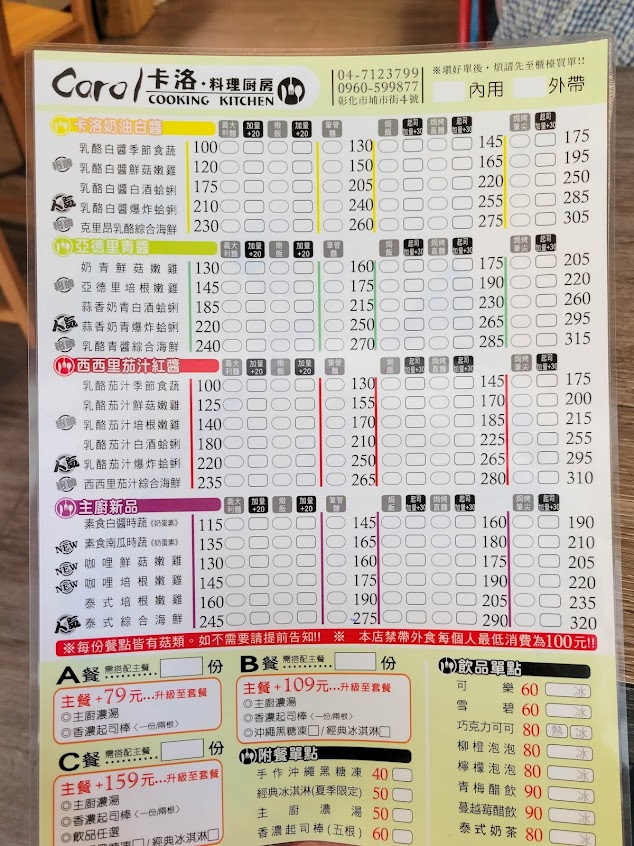 Carol 卡洛·料理廚房
COOKING KITCHEN
04-7123799
0960-599877
彰化市埔市街4號
※填好單後，煩請先至櫃檯買單!!
內用 外帶
卡洛奶油白醬 義大利麵 加量+20 燉飯 加量+20 筆管麵 焗飯 起司加量+30 焗烤直麵 起司加量+30 焗烤筆尖 起司加量+30
乳酪白醬季節食蔬 100 130 145 175
乳酪白醬鮮菇嫩雞 120 150 165 195
乳酪白醬白酒蛤蜊 175 205 220 250
人氣 乳酪白醬爆炸蛤蜊 210 240 255 285
克里昂乳酪綜合海鮮 230 260 275 305
亞德里青醬 義大利麵 加量+20 燉飯 加量+20 筆管麵 焗飯 起司加量+30 焗烤直麵 起司加量+30 焗烤筆尖 起司加量+30
奶青鮮菇嫩雞 130 160 175 205
亞德里培根嫩雞 145 175 190 220
蒜香奶青白酒蛤蜊 185 215 230 260
人氣 蒜香奶青爆炸蛤蜊 220 250 265 295
乳酪青醬綜合海鮮 240 270 285 315
西西里茄汁紅醬 義大利麵 加量+20 燉飯 加量+20 筆管麵 焗飯 起司加量+30 焗烤直麵 起司加量+30 焗烤筆尖 起司加量+30
乳酪茄汁季節食蔬 100 130 145 175
乳酪茄汁鮮菇嫩雞 125 155 170 200
乳酪茄汁培根嫩雞 140 170 185 215
乳酪茄汁白酒蛤蜊 180 210 225 255
人氣 乳酪茄汁爆炸蛤蜊 220 250 265 295
西西里茄汁綜合海鮮 235 265 280 310
主廚新品 義大利麵 加量+20 燉飯 加量+20 筆管麵 焗飯 起司加量+30 焗烤直麵 起司加量+30 焗烤筆尖 起司加量+30
素食白醬時蔬《奶蛋素》 115 145 160 190
NEW 素食南瓜時蔬《奶蛋素》 135 165 180 210
NEW 咖哩鮮菇嫩雞 130 160 175 205
NEW 咖哩培根嫩雞 145 175 190 220
泰式培根嫩雞 160 190 205 235
人氣 泰式綜合海鮮 245 275 290 320
※每份餐點皆有菇類。如不需要請提前告知!! ※ 本店禁帶外食每個人最低消費為100元!!
A餐 需搭配主餐 份
主餐+79元...升級至套餐
◎主廚濃湯
◎香濃起司棒〈一份/兩根〉
B餐 需搭配主餐 份
主餐+109元...升級至套餐
◎主廚濃湯
◎香濃起司棒〈一份/兩根〉
◎沖繩黑糖凍□/經典冰淇淋□
C餐 需搭配主餐 份
主餐+159元...升級至套餐
◎主廚濃湯
◎香濃起司棒〈一份/兩根〉
◎飲品任選
黑糖凍□/經典冰淇淋□
附餐單點
手作沖繩黑糖凍 40
經典冰淇淋(夏季限定) 50
主廚濃湯 50
香濃起司棒(五根) 60
飲品單點
可樂 60 冰
雪碧 60 冰
巧克力可可 80 熱 冰
柳橙泡泡 80 冰
檸檬泡泡 80 冰
青梅醋飲 90 冰
蔓越莓醋飲 90 冰
泰式奶茶 80 冰